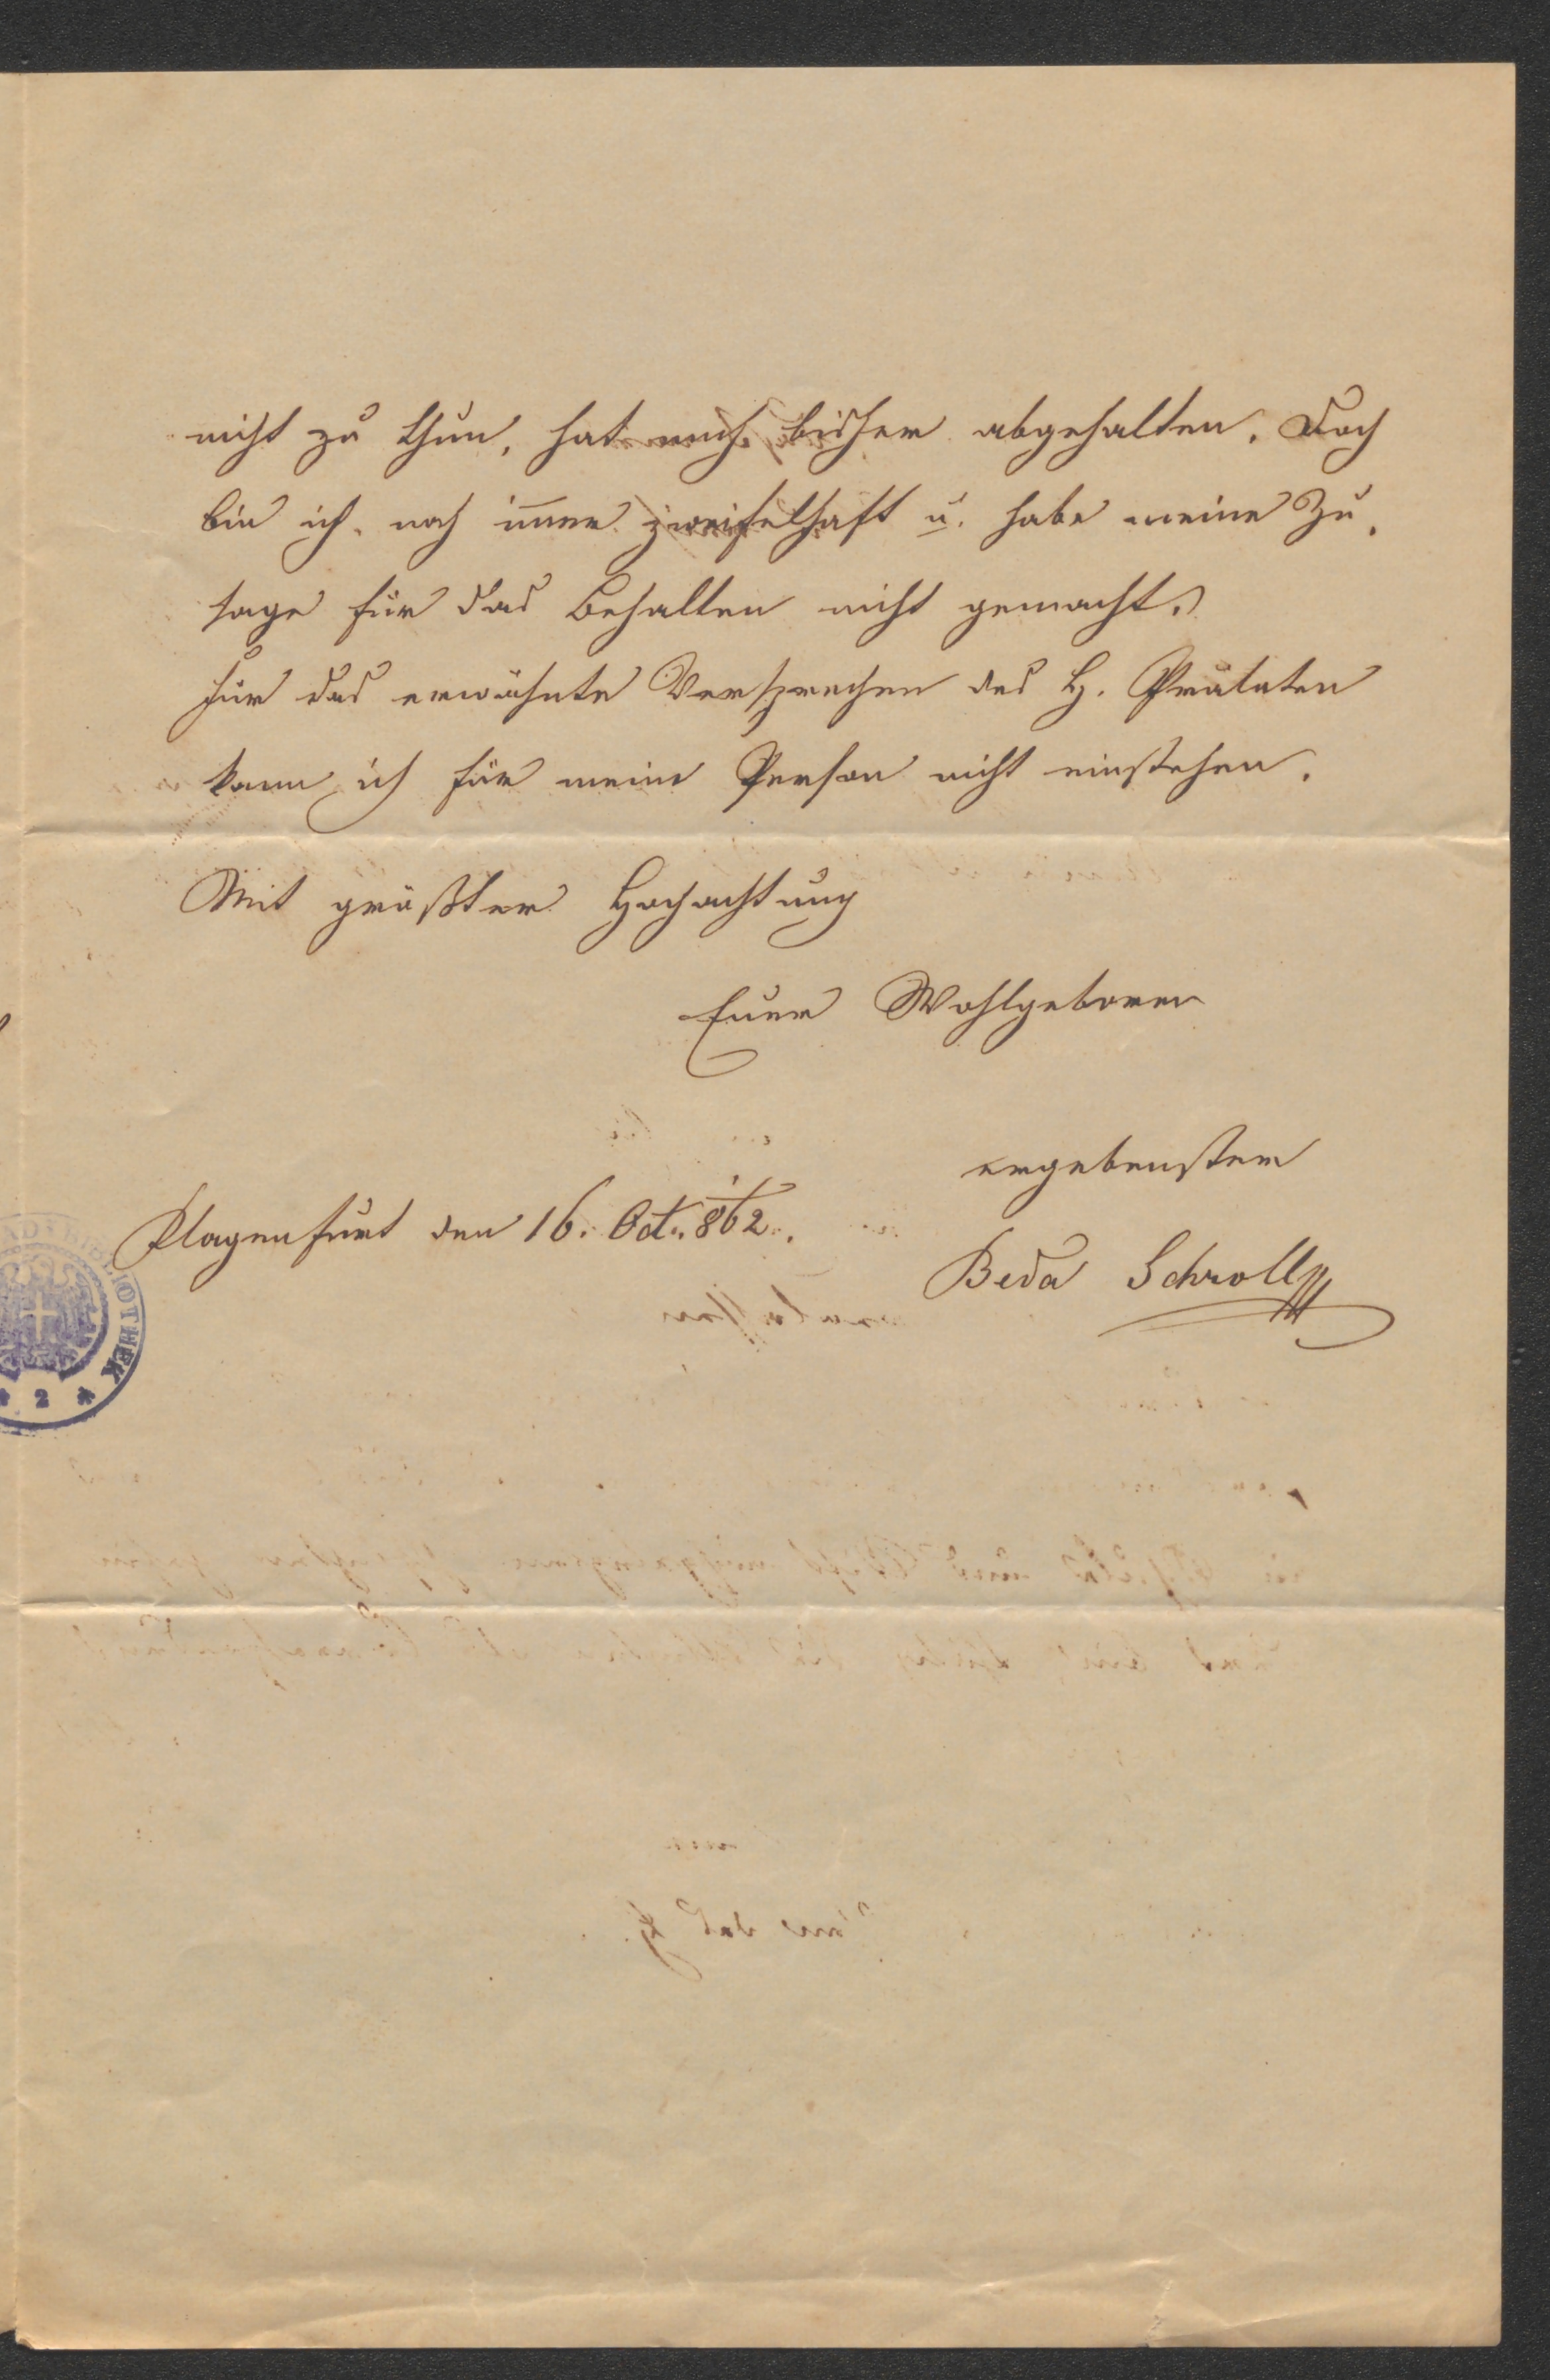 nicht zu thun, hat mich bisher abgehalten. Doch
bin ich noch im̅er zweifelhaft u. habe meine Zu-
sage für das Behalten nicht gemacht.
Für das erwähnte Versprechen des H. Prälaten
kann ich für meine Person nicht einstehen.
Mit größter Hochachtung
Euer Wohlgeboren
ergebenster
Klagenfurt den 16. Oct. 862.
Beda Schroll
BIBLIOTHEK
* 2 *